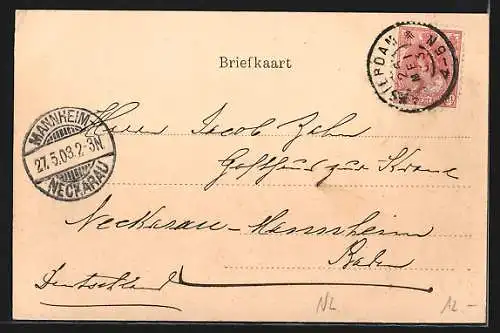 Briefkaart
AMSTERDAM
26 MEI
4-5N
MANNHEIM-
27.5.03.2-3N
NECKARAU
Herrn Jacob Zahn
Gasthaus zur Krone
Neckarau-Mannheim
Baden
Deutschland
NL
12.-